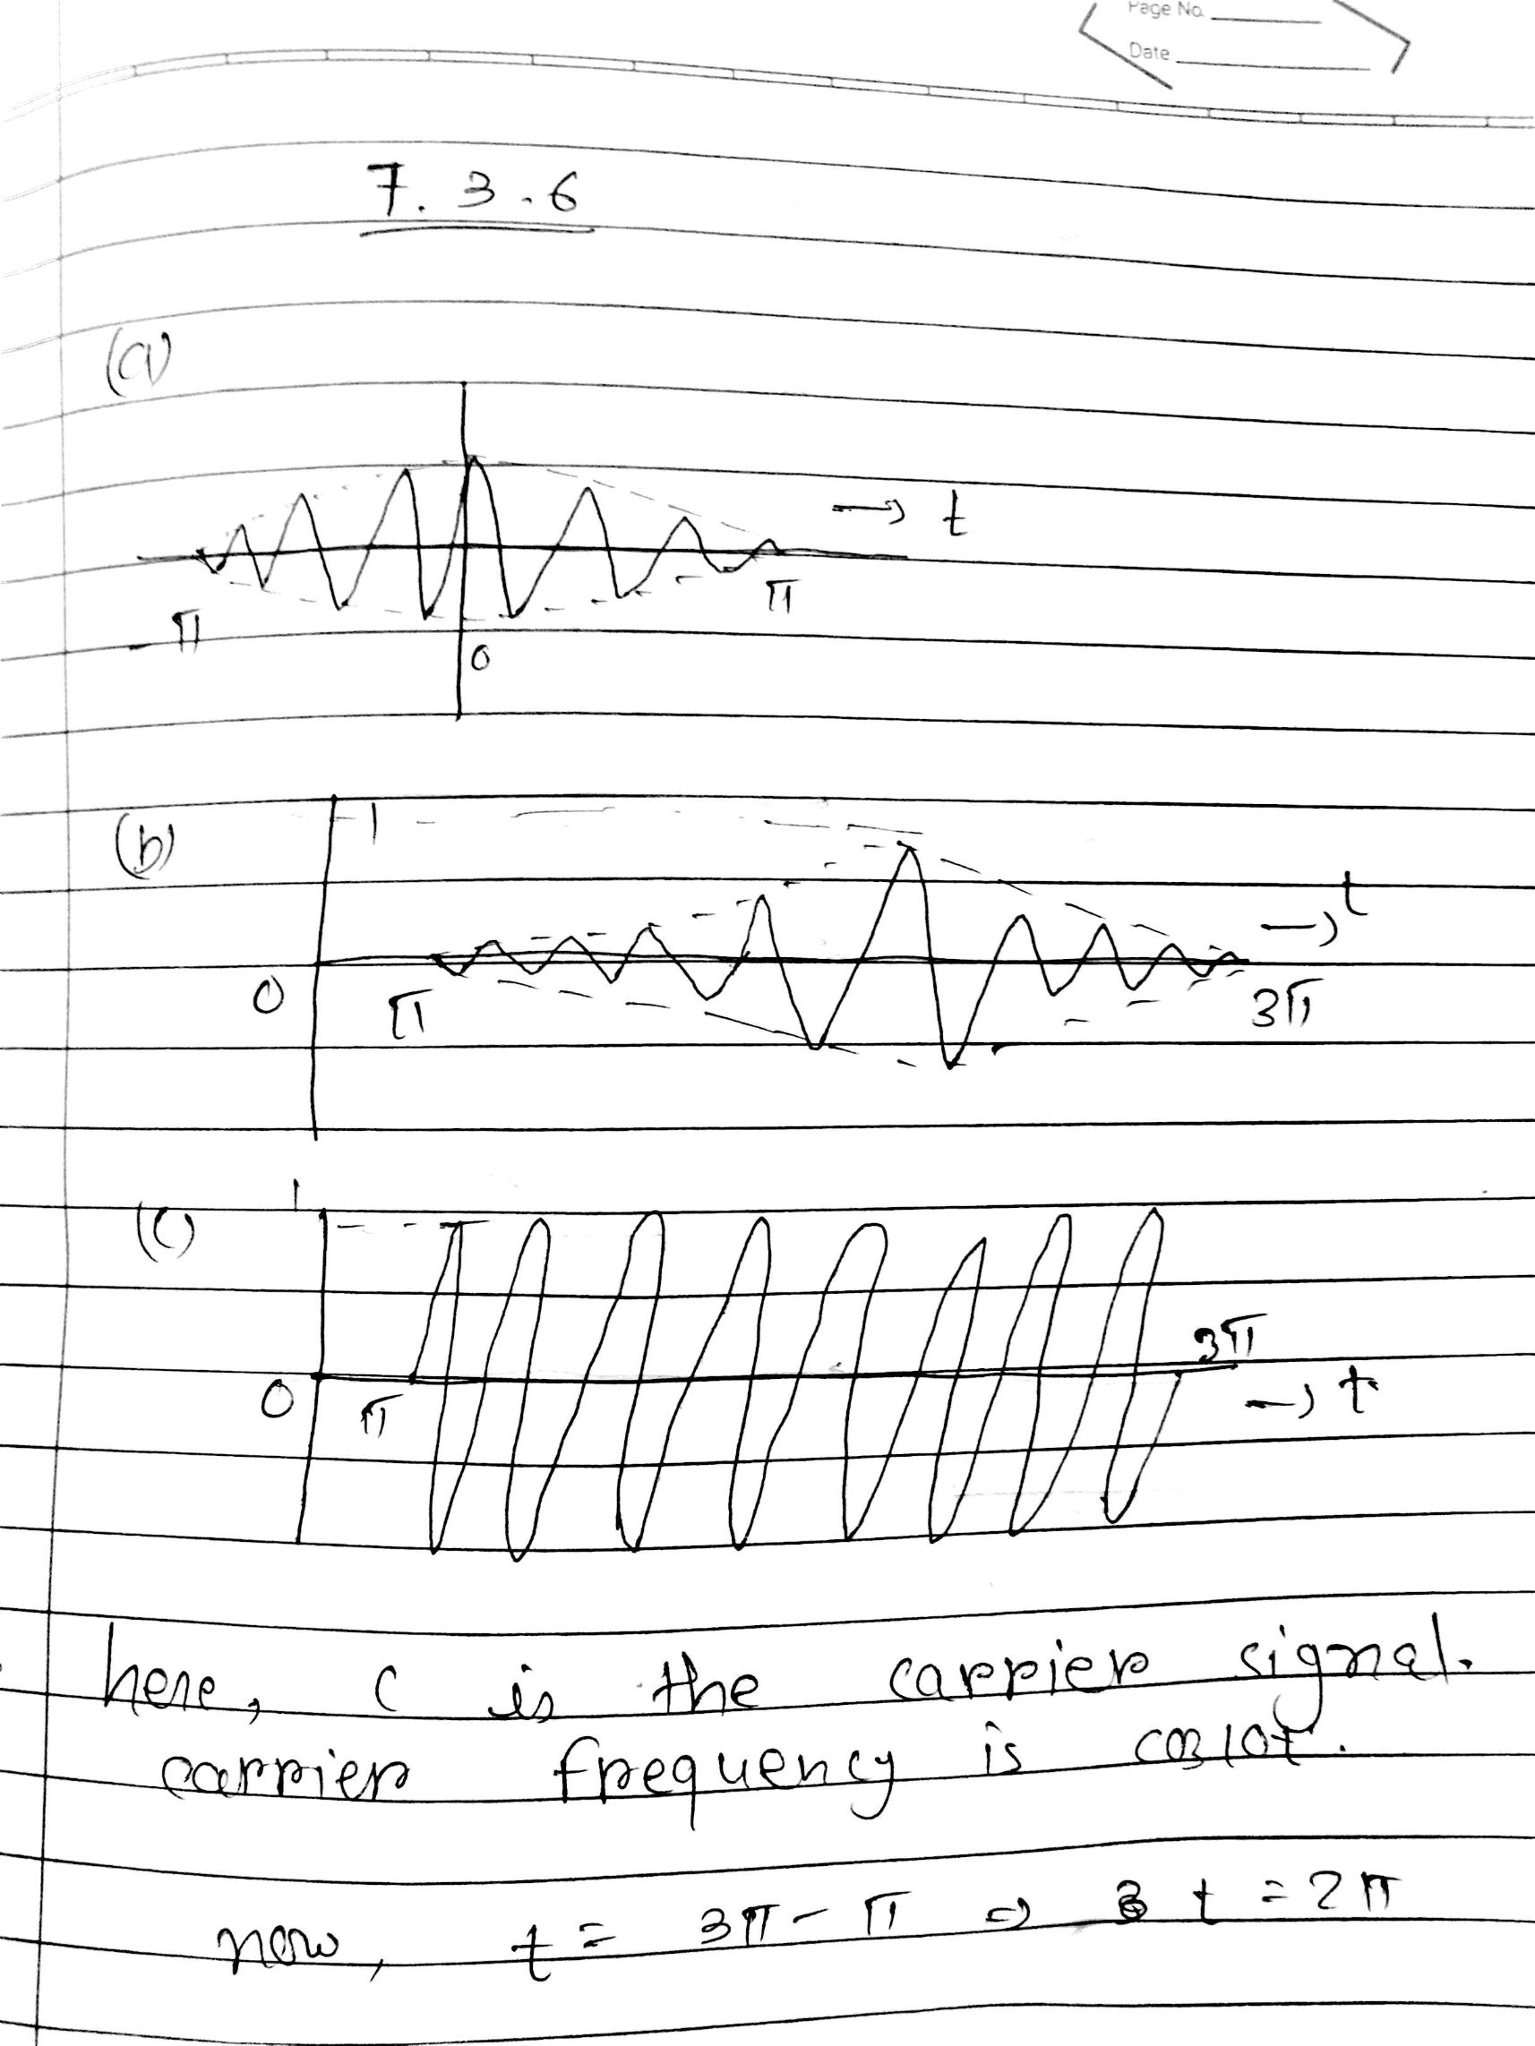 Page No.
Date
7.3.6
(a)
→ t
-π
π
0
(b)
1
→ t
0
π
3π
(c)
1
3π
0
π
→ t
here, c is the carrier signal.
carrier frequency is cos10t.
now, t = 3π - π ⇒ t = 2π